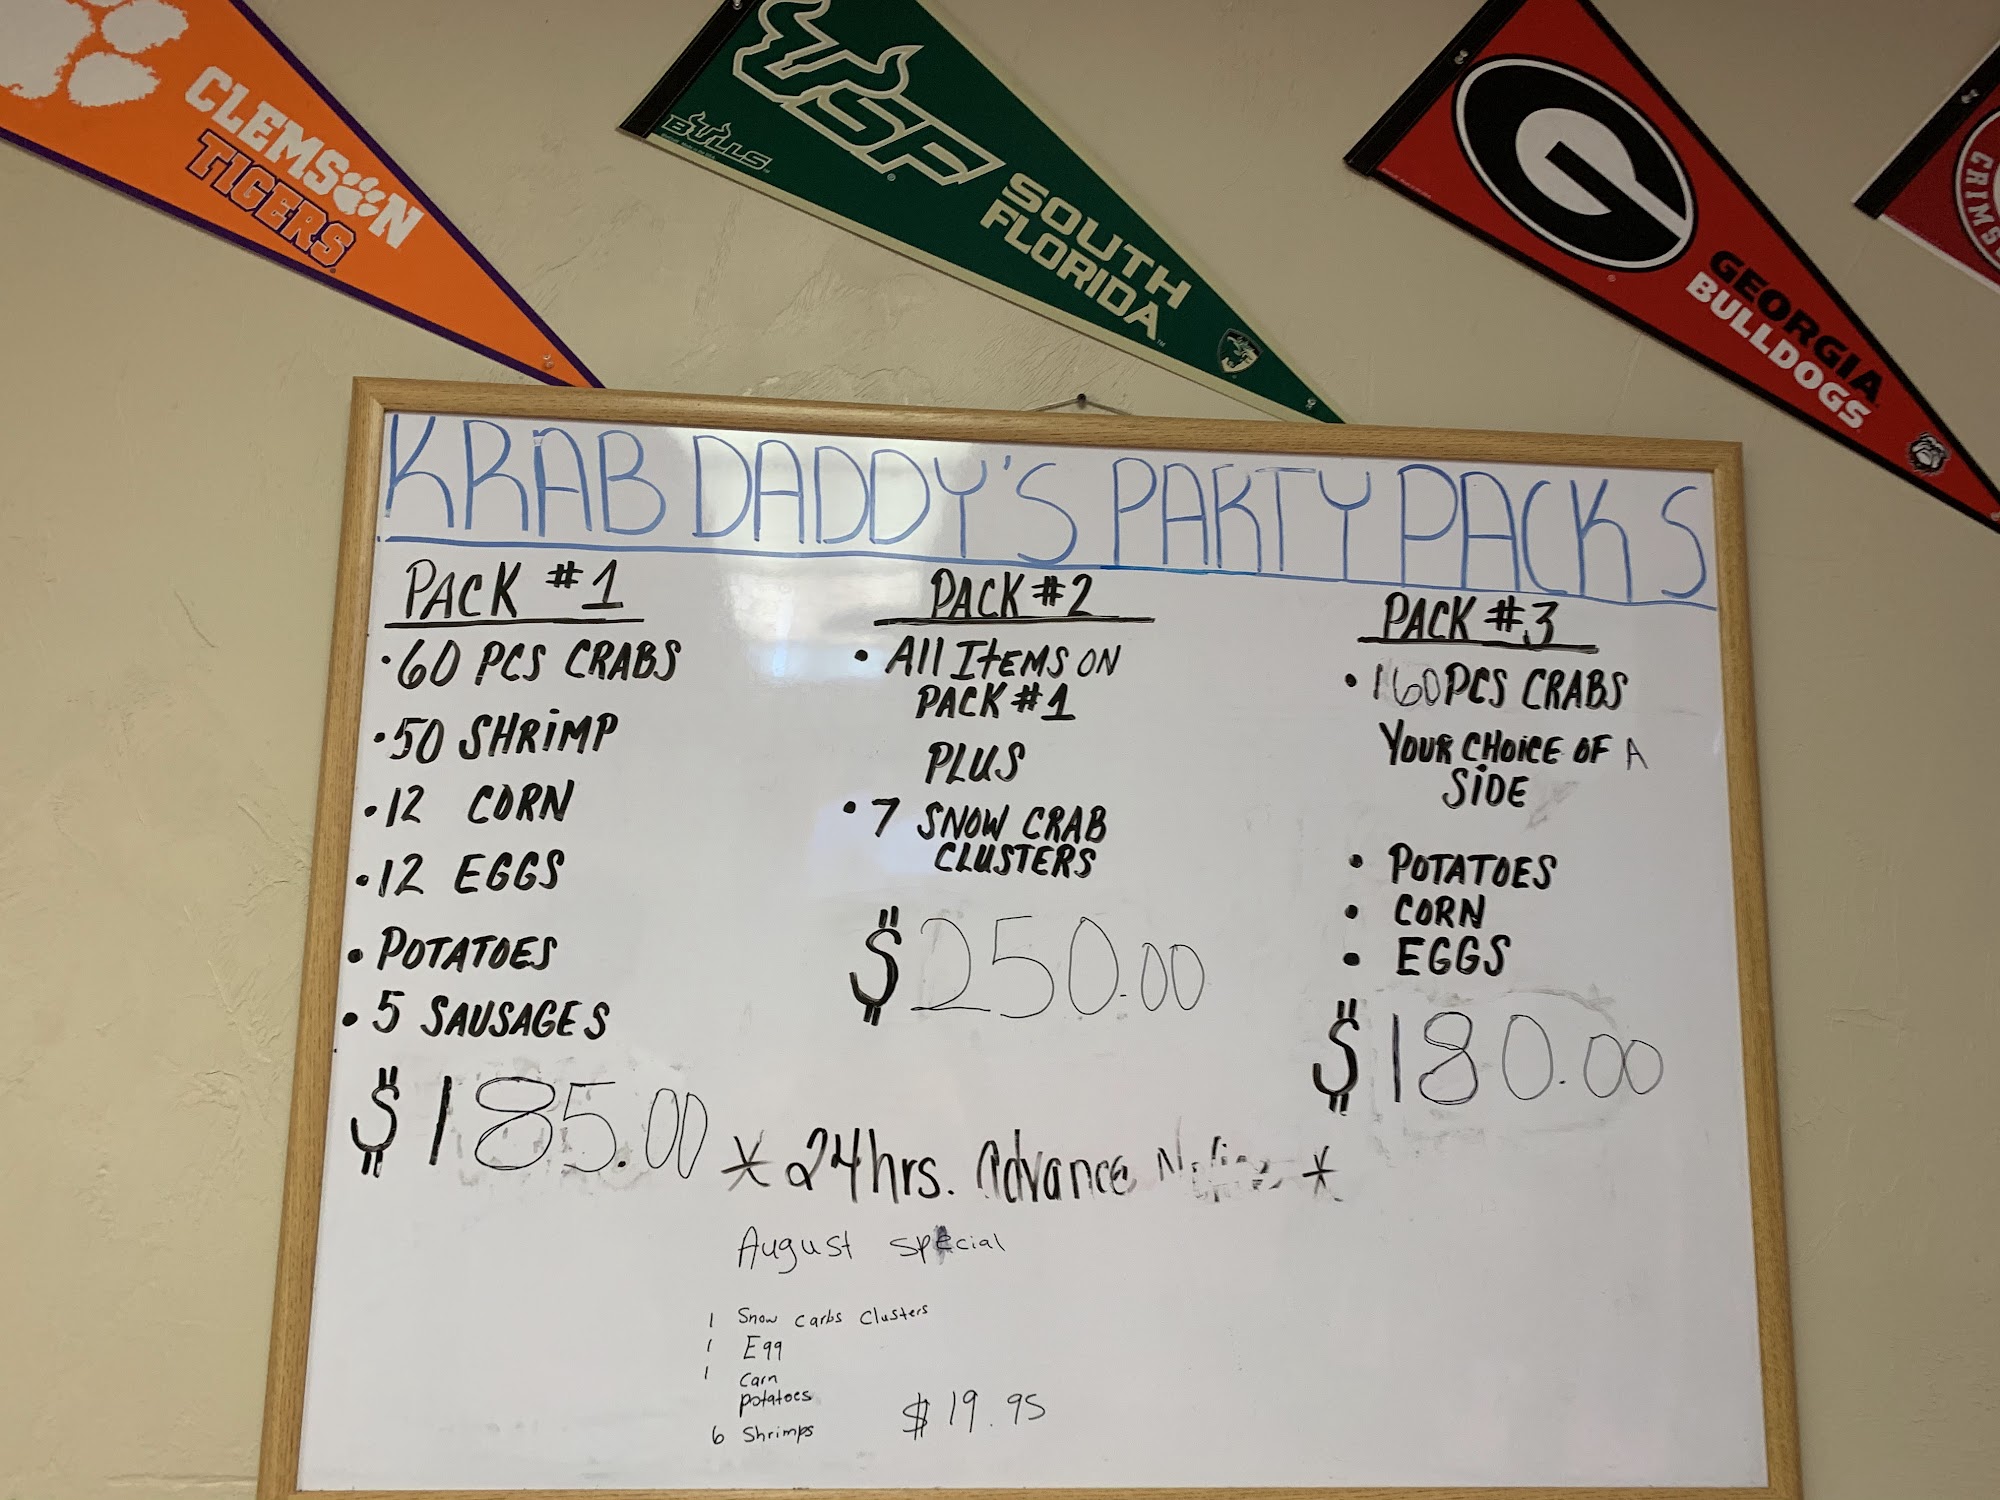 CLEMSON
TIGERS
USF
BULLS
SOUTH
FLORIDA
G
GEORGIA
BULLDOGS
CRIMS
KRAB DADDY'S PARTY PACKS
PACK #1
• 60 PCS CRABS
• 50 SHRIMP
• 12 CORN
• 12 EGGS
• POTATOES
• 5 SAUSAGES
$185.00
PACK #2
• All ITEMS ON
PACK #1
PLUS
• 7 SNOW CRAB
CLUSTERS
$250.00
PACK #3
• 160 PCS CRABS
YOUR CHOICE OF A
SIDE
• POTATOES
• CORN
• EGGS
$180.00
* 24hrs. Advance Notice *
August special
1 Snow carbs clusters
1 Egg
1 Corn
potatoes
6 Shrimps
$19.95